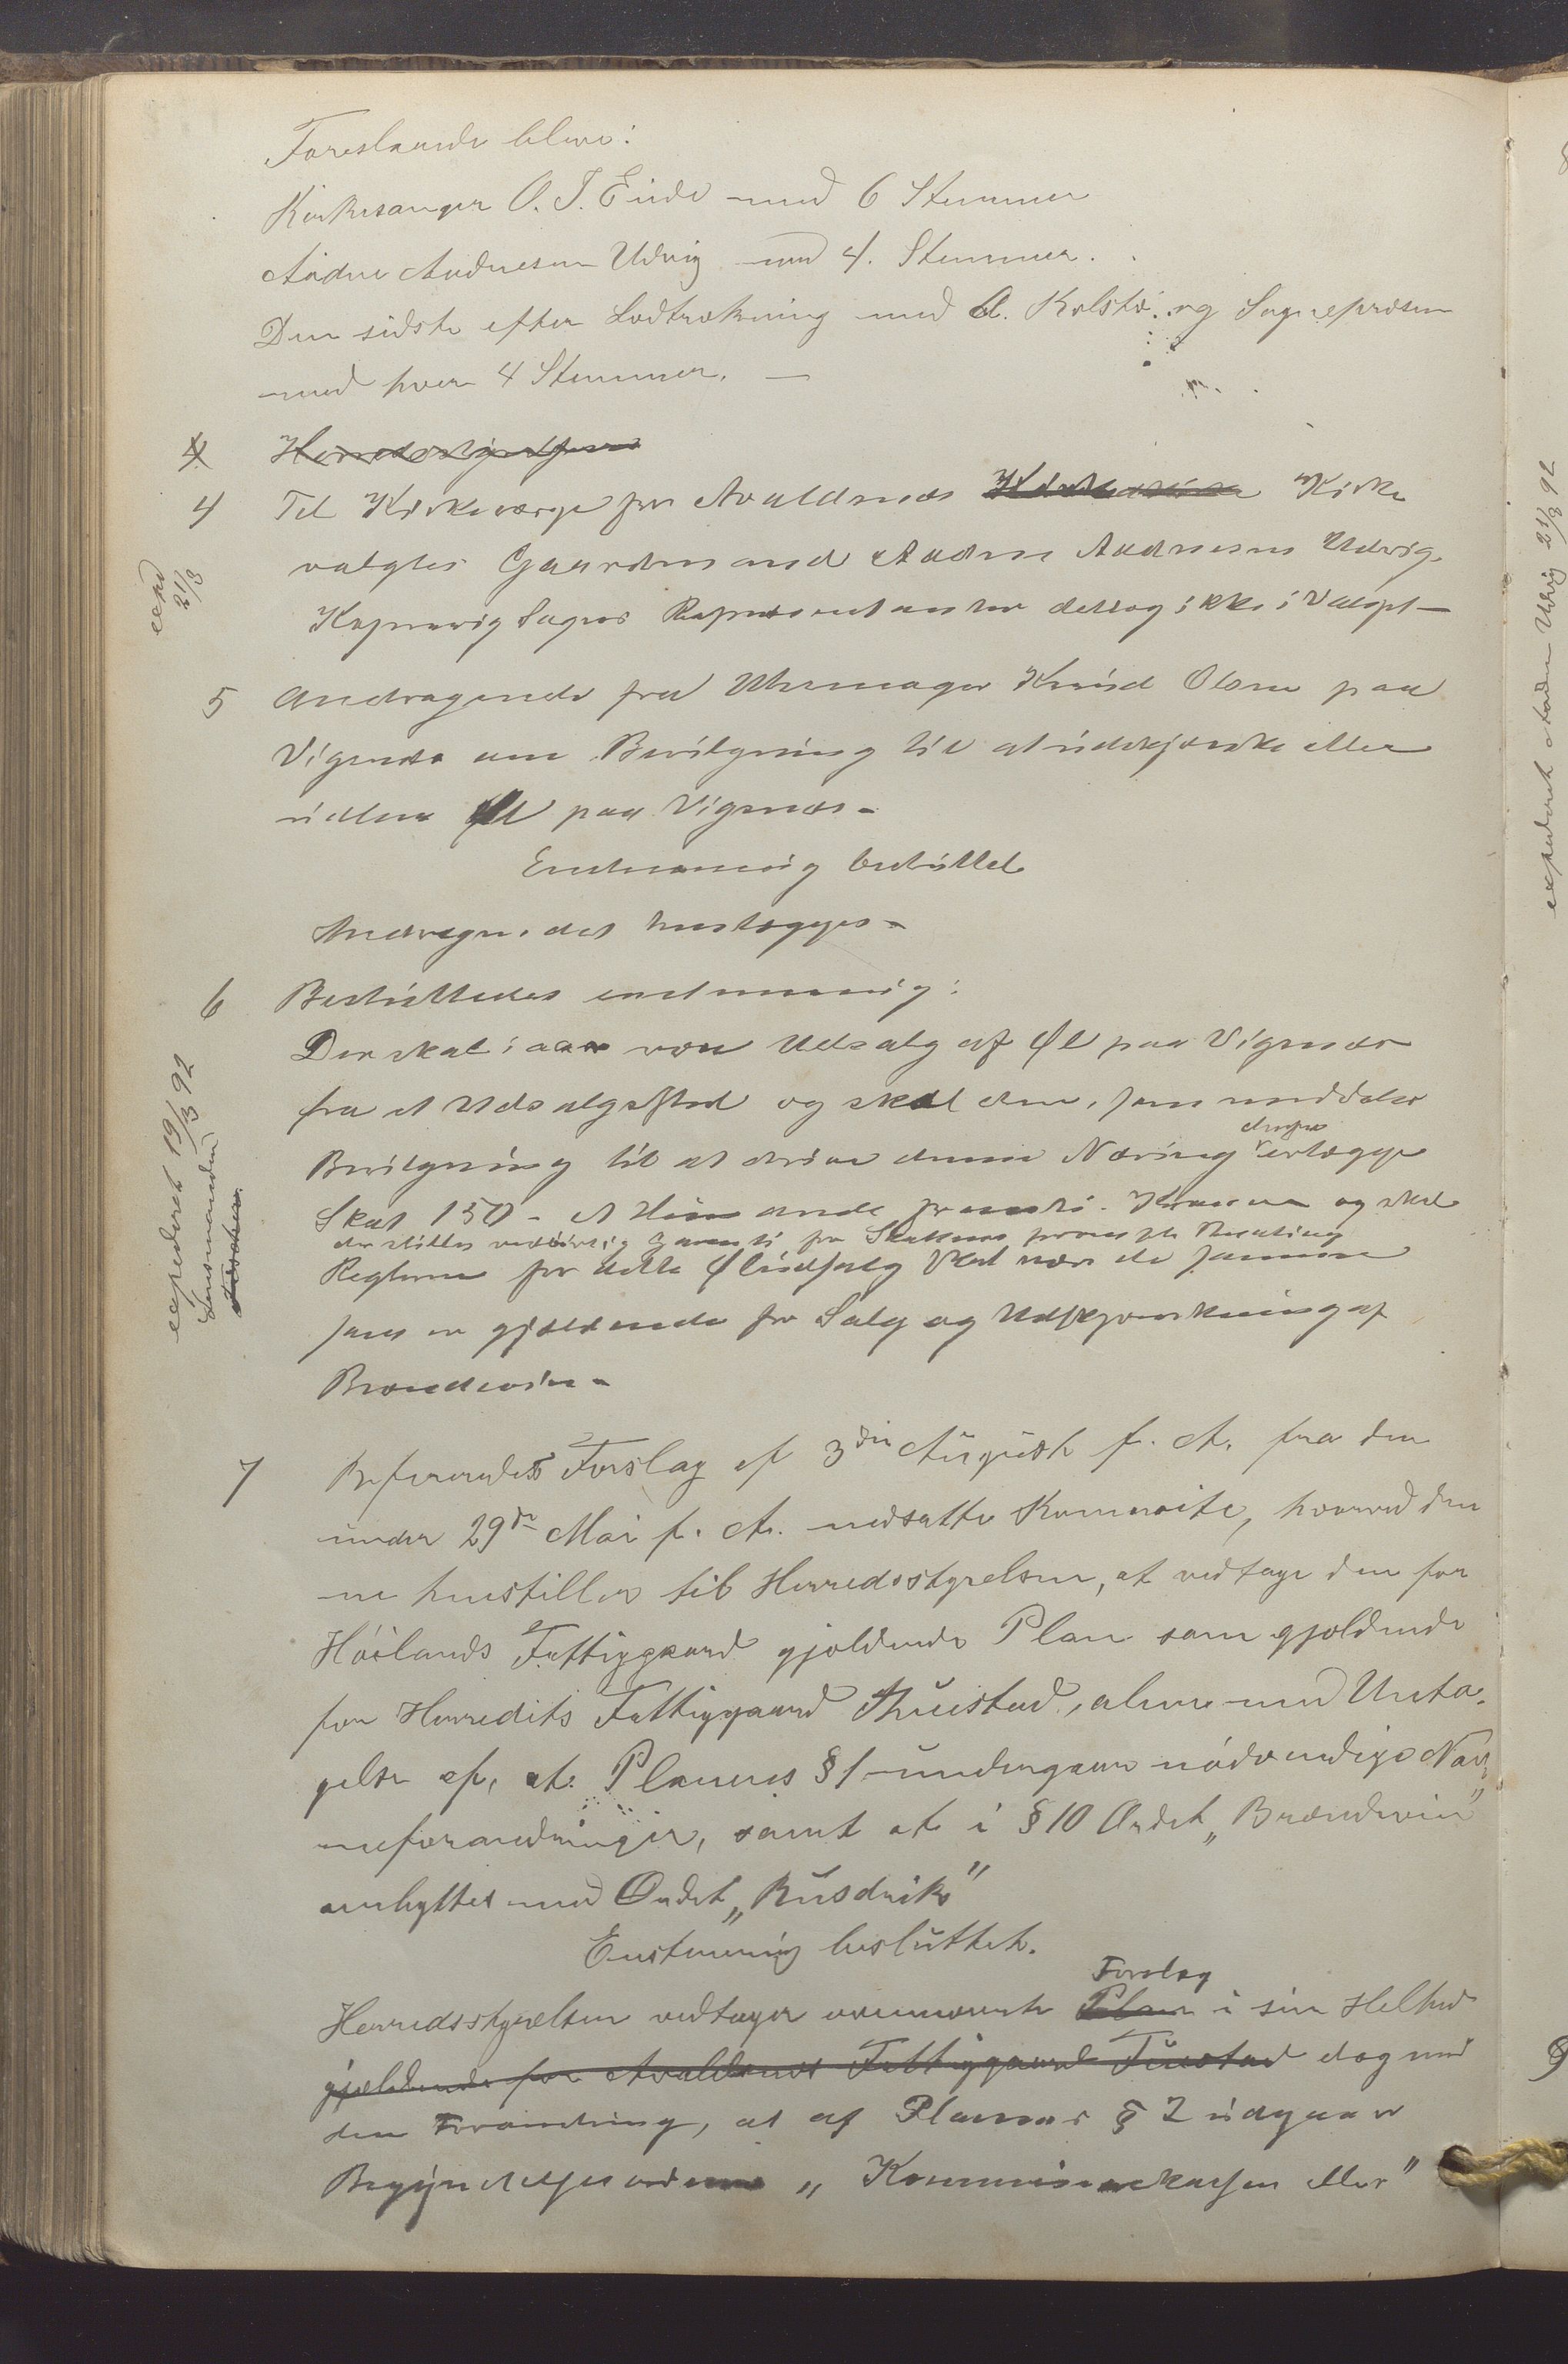 Foreslaaede bleve:
Kirkesanger O. T. Eide med 6 Stemmer
Aadne Aadnesen Udvig med 4. Stemmer.
Den sidste efter Lodtrækning med A. Kolstø og
med hver 4 Stemmer. —
4 Herredsstyrelsen
4 Til Kirkeværge for Avaldsnes Kirke
valgtes Gaardmand Aadne Aadnesen Udvig.
Kopervig Sogns Repræsentanter deltog ikke i Valget —
exped 21/3
5 Andragende fra Uhrmager Knud Olsen paa
Vigsnæs om Bevilgning til at udskjænke eller
udelse Øl paa Vigsnæs -
Enstemmig besluttet
Andragendet henlægges -
6 Besluttedes enstemmig:
Der skal i aar være Udsalg af Øl paa Vigsnæs
fra et Udsalgssted og skal den, som meddeles
Bevilgning til at drive denne Næring derfor erlægge
Skat 150 - et Hundrede femti - Kroner og skal
der stilles Garanti for Skattens prompte Betaling
Reglerne for dette Øludsalg skal være de samme
som er gjældende for Salg og Udskjænkning af
Brændevin -
expederet 19/3 92
Lensmanden
7 Refereredes Forslag af 3die August f. A. fra den
under 29de Mai f. A. nedsatte Komite, hvorved den
ne henstiller til Herredsstyrelsen, at vedtage den for
Høilands Fattiggaard gjældende Plan som gjældende
for Herredets Fattiggaard Thuestad, alene med Unta-
gelse af, at Planens § 1 undergaar nødvendige Nav-
neforandringer, samt at i § 10 Ordet „Brændevin"
ombyttes med Ordet „Rusdrik"
Enstemmig besluttet.
Herredsstyrelsen vedtager ovennævnte Plan Forslag i sin Helhed
gjældende for Avaldsnes Fattiggaard Tuestad dog med
den Forandring, at af Planens § 2 udgaar
Begyndelsesordene „Kommunekassen eller"
expederet Aadne Udvig 21/3 92